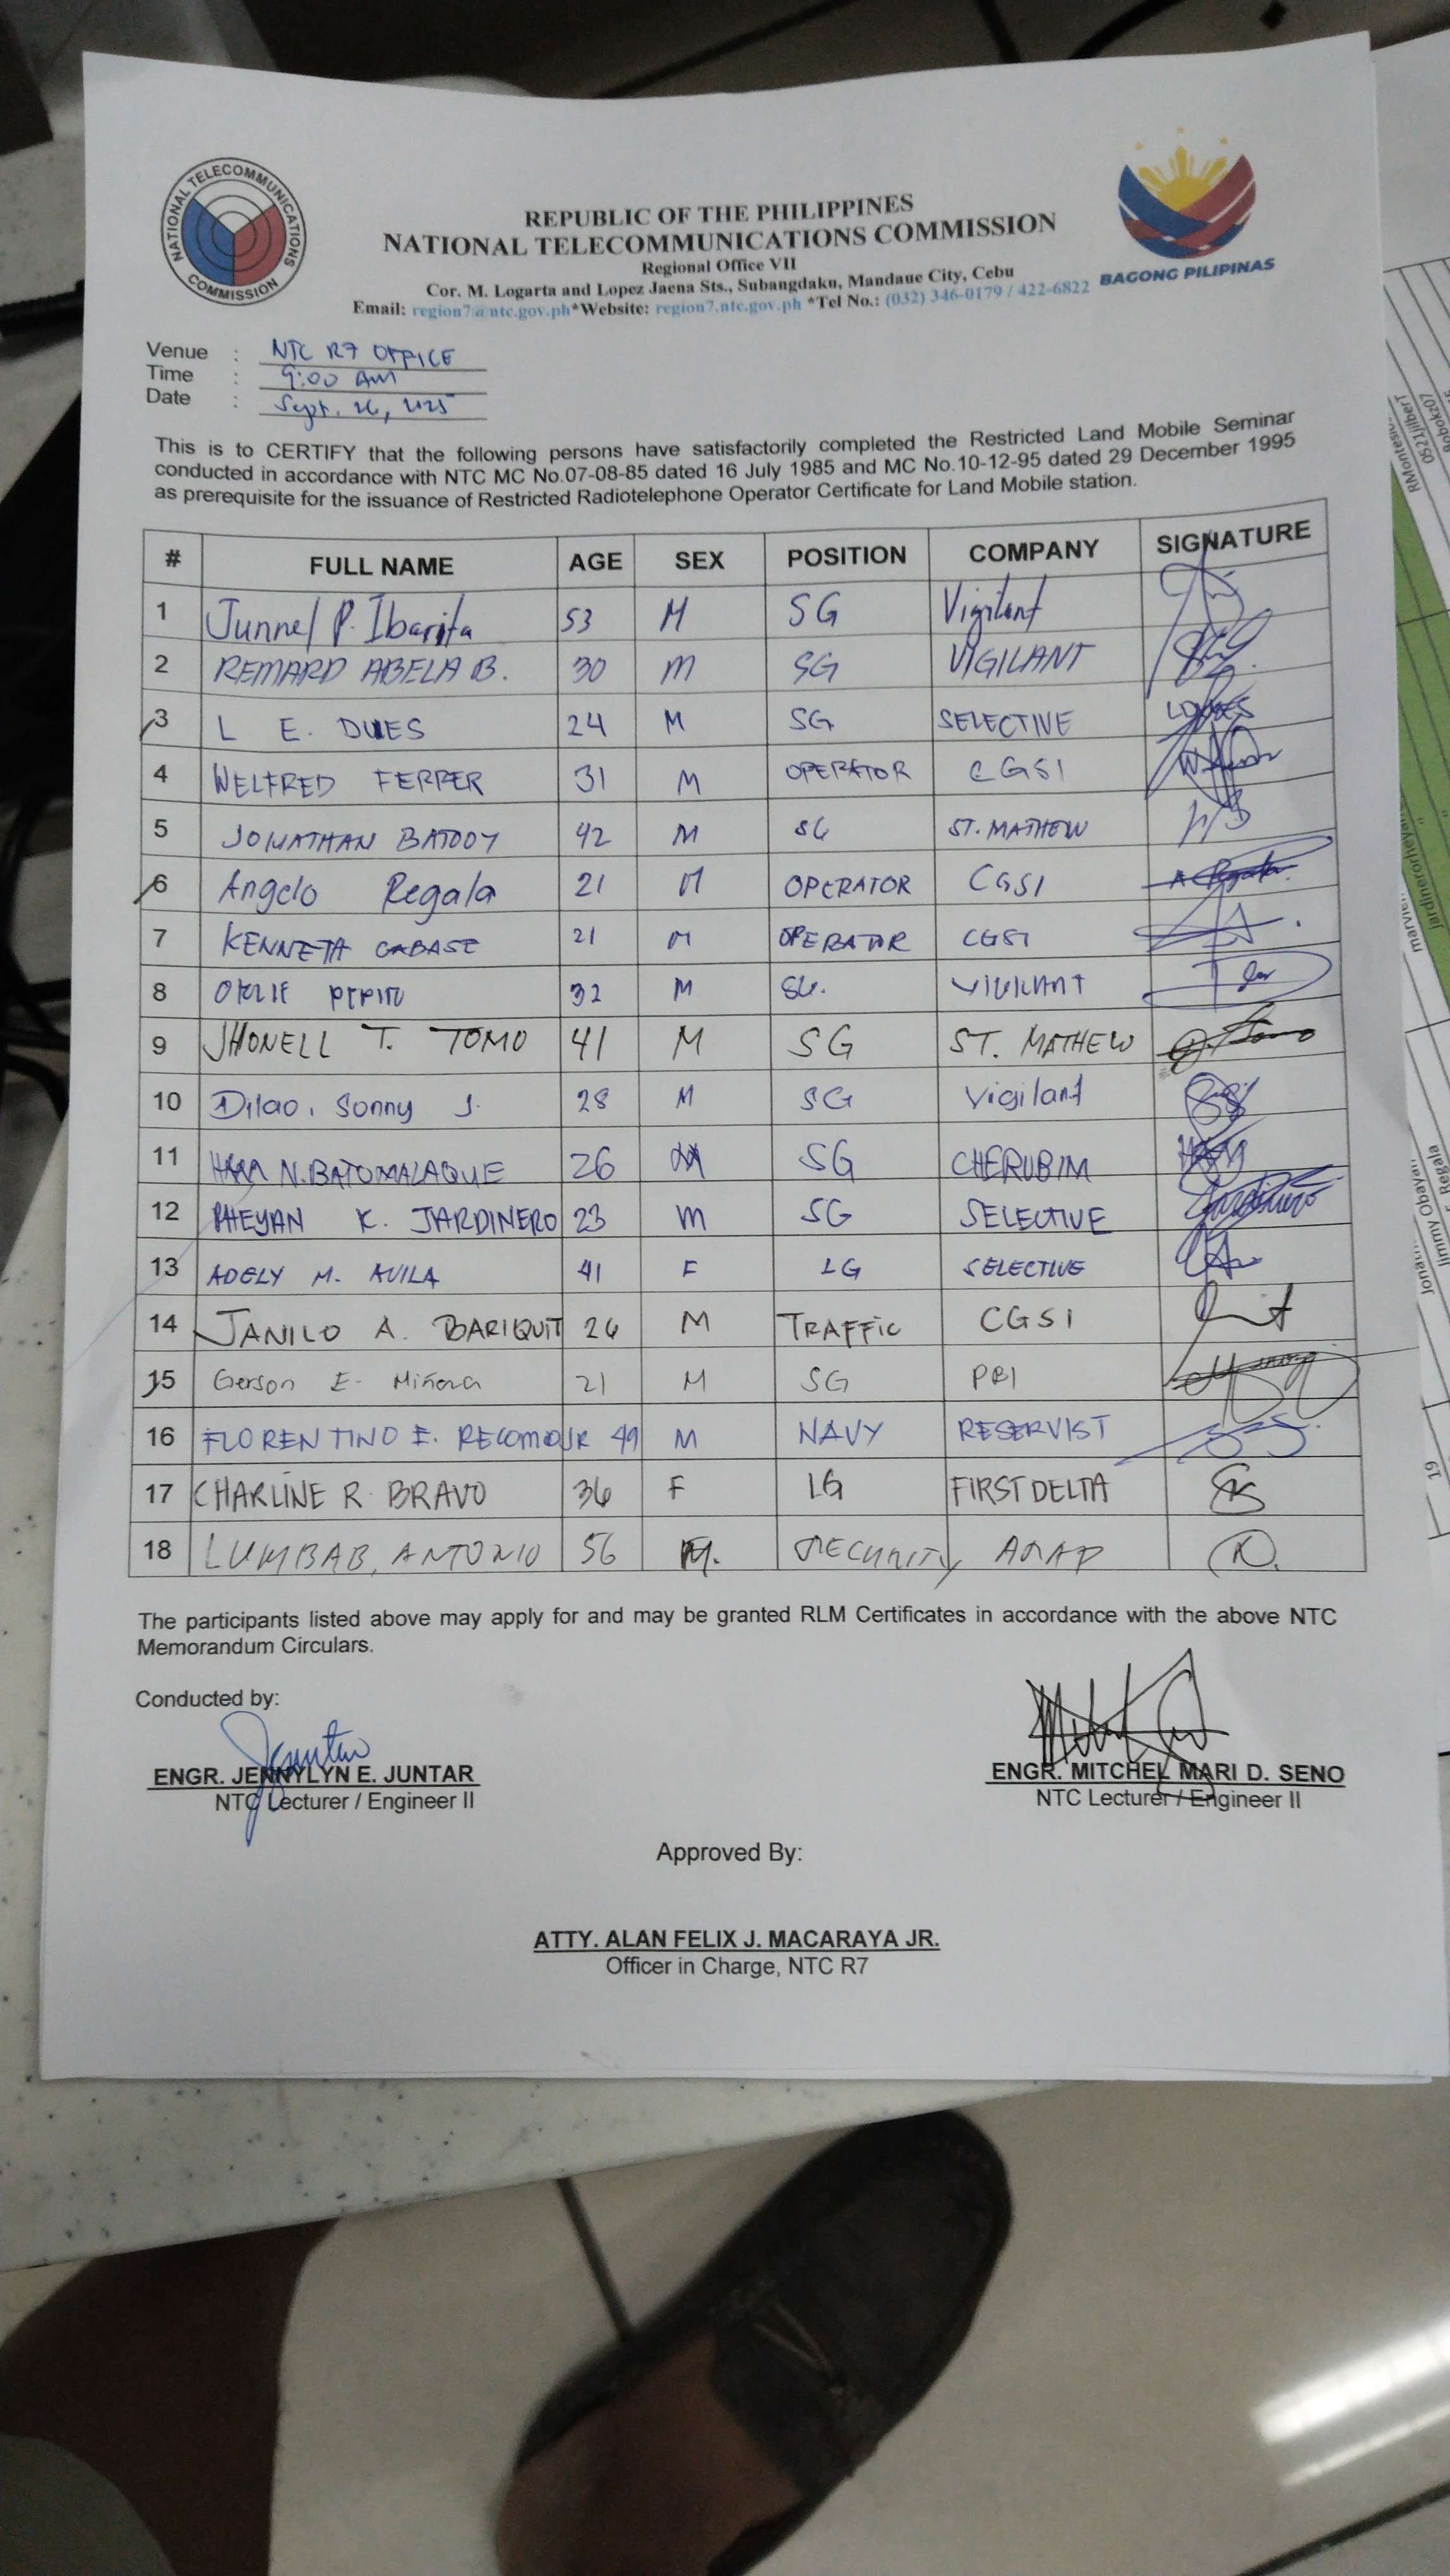 NATIONAL TELECOMMUNICATIONS COMMISSION
REPUBLIC OF THE PHILIPPINES
NATIONAL TELECOMMUNICATIONS COMMISSION
Regional Office VII
Cor. M. Logarta and Lopez Jaena Sts., Subangdaku, Mandaue City, Cebu
Email: region7@ntc.gov.ph*Website: region7.ntc.gov.ph *Tel No.: (032) 346-0179 / 422-6822
BAGONG PILIPINAS
Venue : NTC R7 OFFICE
Time : 9:00 AM
Date : Sept. 26, 2025
This is to CERTIFY that the following persons have satisfactorily completed the Restricted Land Mobile Seminar
conducted in accordance with NTC MC No.07-08-85 dated 16 July 1985 and MC No.10-12-95 dated 29 December 1995
as prerequisite for the issuance of Restricted Radiotelephone Operator Certificate for Land Mobile station.
# FULL NAME AGE SEX POSITION COMPANY SIGNATURE
1 Junnel P. Ibarita 53 M SG Vigilant
2 REMARD ABELA B. 30 M SG VIGILANT
3 L E. DUES 24 M SG SELECTIVE
4 WELFRED FERRER 31 M OPERATOR CGSI
5 JONATHAN BATOOY 42 M SG ST. MATHEW
6 Angelo Regala 21 M OPERATOR CGSI
7 KENNETH GABASE 21 M OPERATOR CGSI
8 PEPITO 32 M SG. VIGILANT
9 JHONELL T. TOMO 41 M SG ST. MATHEW
10 Dilao, Sonny J. 28 M SG Vigilant
11 N. BATOMALAQUE 26 M SG CHERUBIM
12 RHEYAN K. JARDINERO 23 M SG SELECTIVE
13 ADELY M. AVILA 41 F LG SELECTIVE
14 JANILO A. BARIQUIT 26 M TRAFFIC CGSI
15 Gerson E. Miñoza 21 M SG PBI
16 FLORENTINO E. RECOMO JR 49 M NAVY RESERVIST
17 CHARLINE R. BRAVO 36 F LG FIRST DELTA
18 LUMBAB, ANTONIO 56 M. SECURITY
The participants listed above may apply for and may be granted RLM Certificates in accordance with the above NTC
Memorandum Circulars.
Conducted by:
ENGR. JENNYLYN E. JUNTAR
NTC Lecturer / Engineer II
ENGR. MITCHEL MARI D. SENO
NTC Lecturer / Engineer II
Approved By:
ATTY. ALAN FELIX J. MACARAYA JR.
Officer in Charge, NTC R7